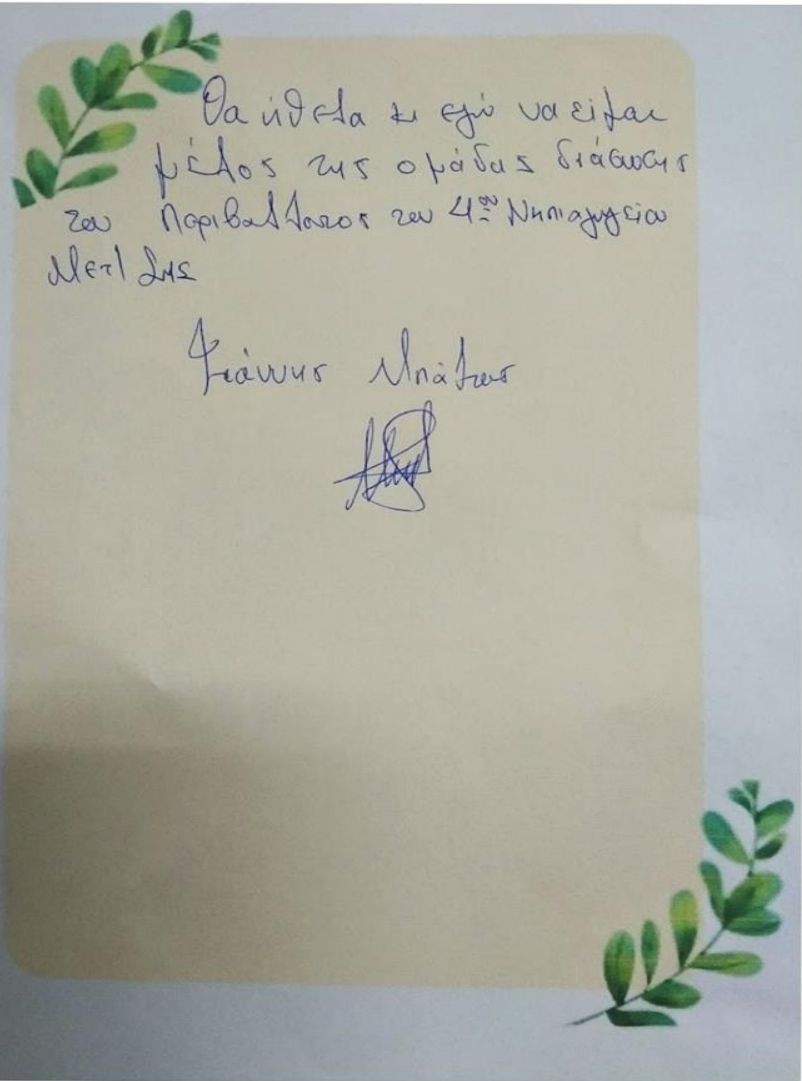 Θα ήθελα κι εγώ να είμαι
μέλος της ομάδας διάσωσης
του Περιβάλλοντος του 4ου Νηπιαγωγείου
Γιάννης